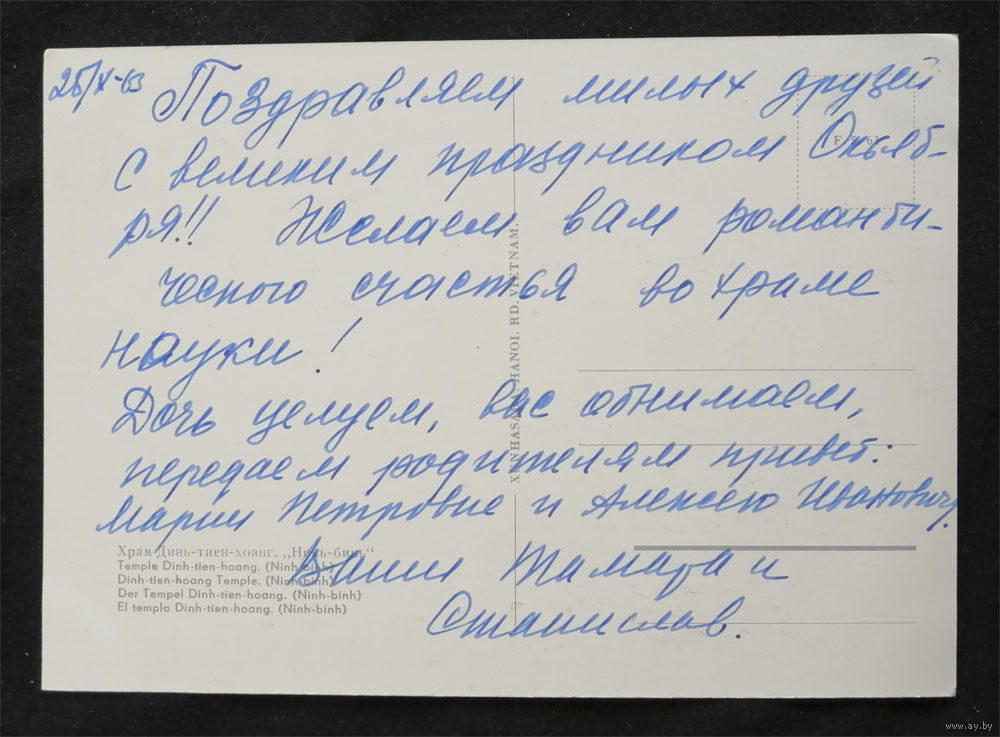 25/X-63
Поздравляем милых друзей
с великим праздником Октяб-
ря!! Желаем вам романти-
ческого счастья во храме
науки!
Дочь целуем, вас обнимаем,
передаем родителям привет:
Марии Петровне и Алексею Ивановичу.
Ваши Тамара и
Станислав.
Храм Динь-тиен-хоанг. „Нинь-бинь“
Temple Dinh-tien-hoang. (Ninh-binh)
Dinh-tien-hoang Temple. (Ninh-binh)
Der Tempel Dinh-tien-hoang. (Ninh-binh)
El templo Dinh-tien-hoang. (Ninh-binh)
XUNHASABA HANOI. RD. VIETNAM.
www.ay.by